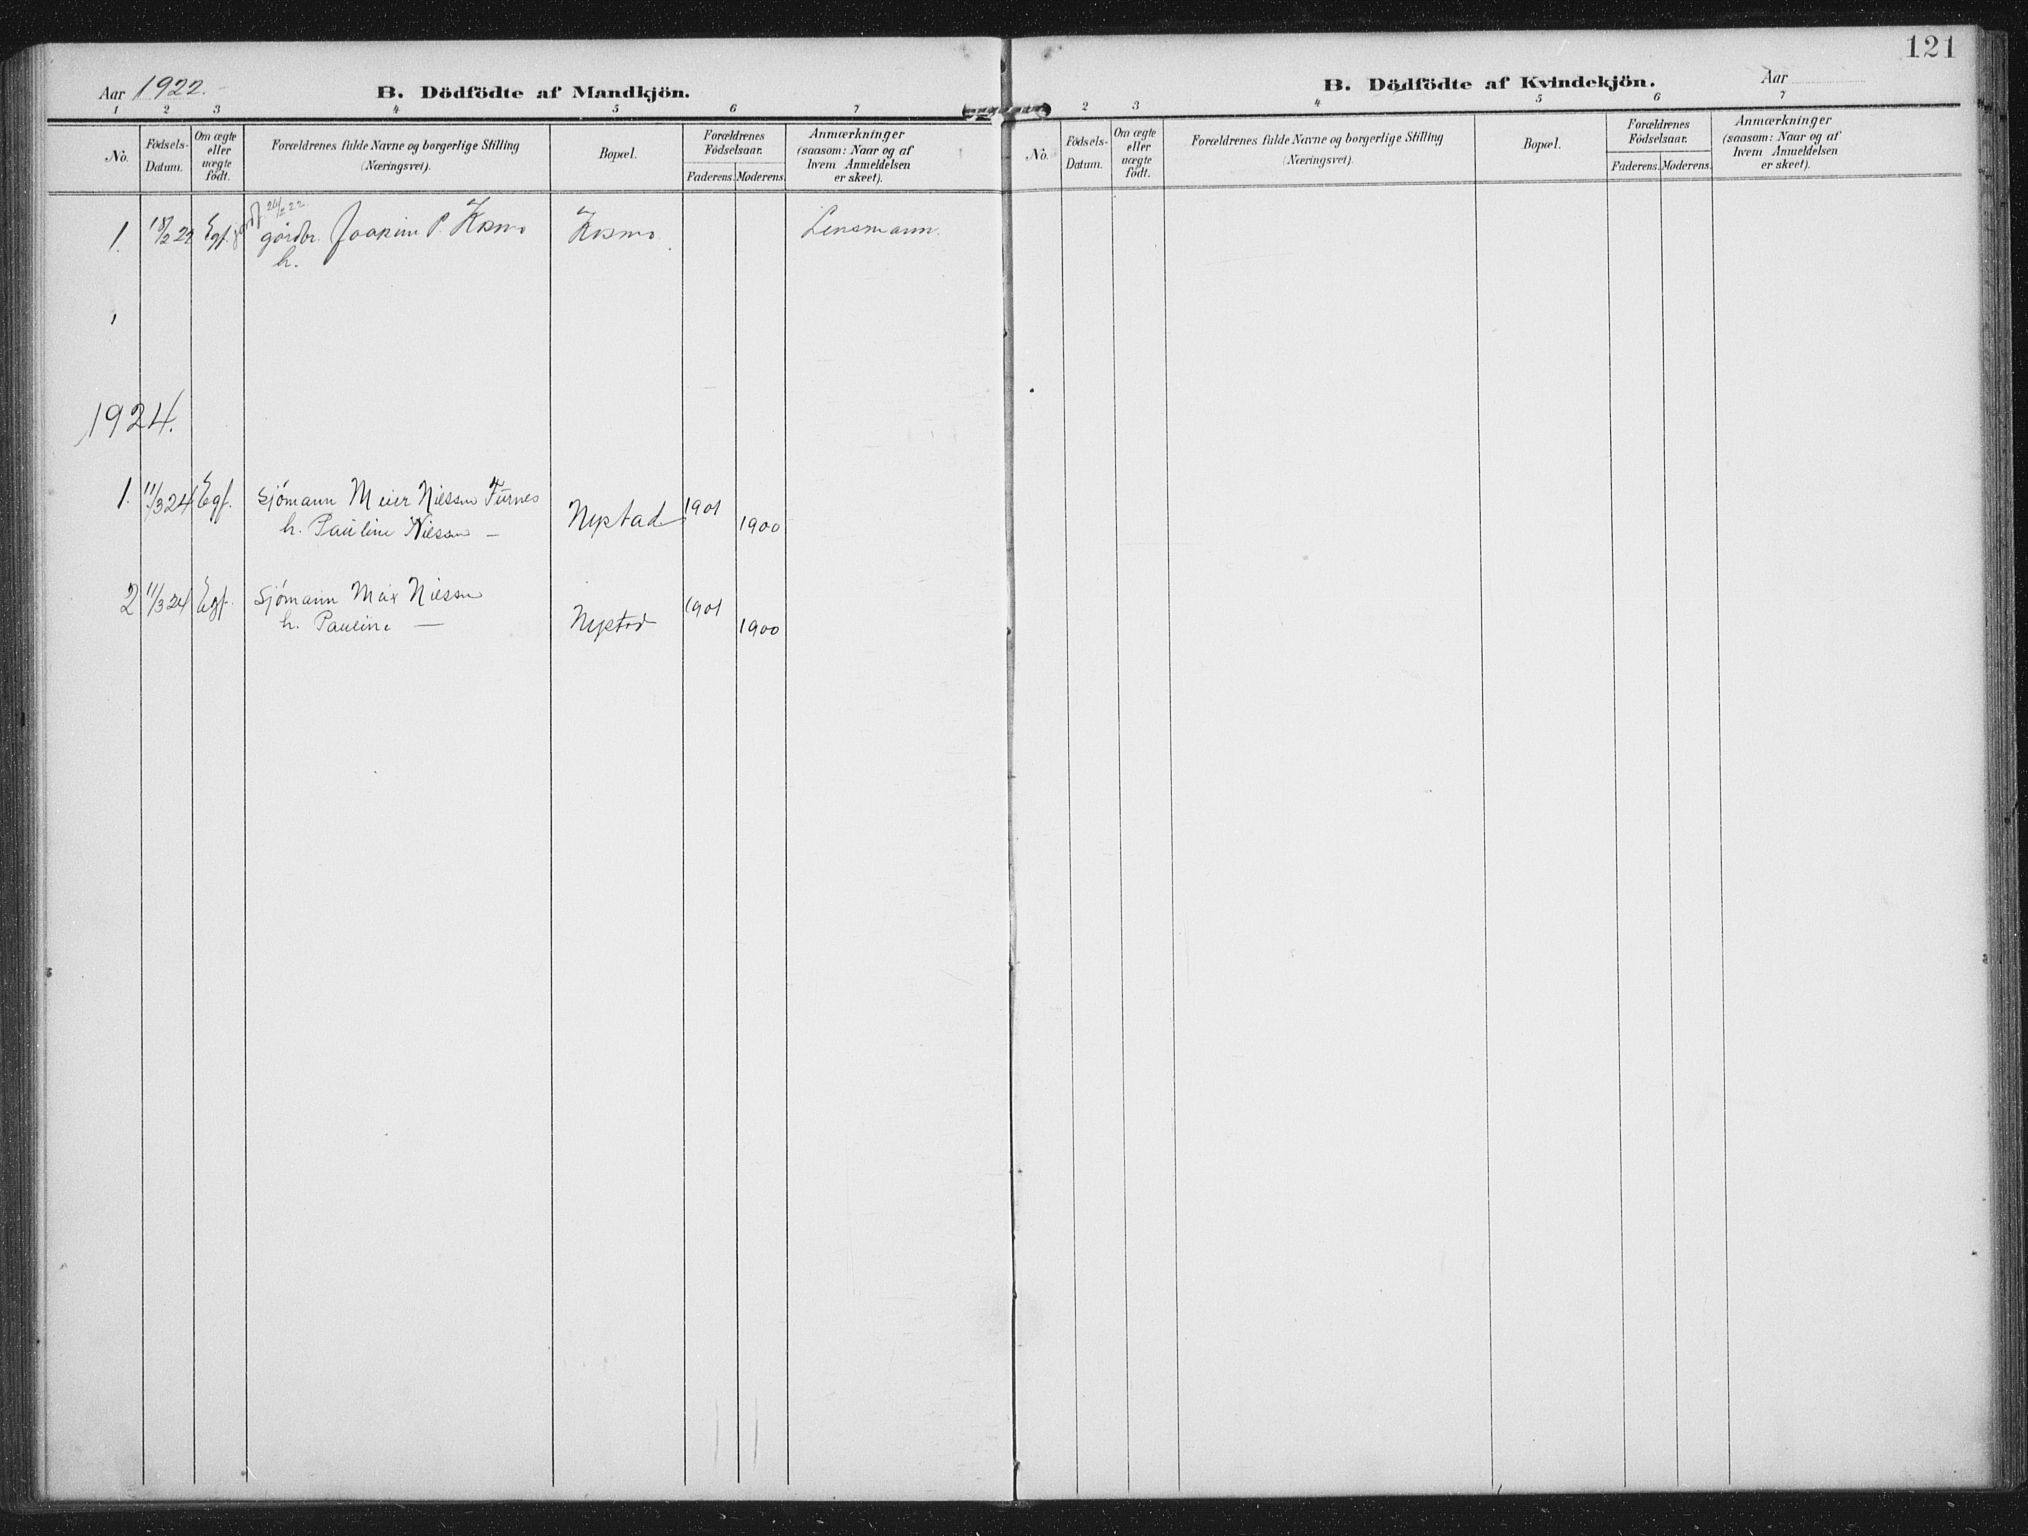 121
Aar 1922.
B. Dödfödte af Mandkjön.
1 2 3 4 5 6 7
No.
Födsels-
Datum.
Om ægte
eller
uægte
født.
Forældrenes fulde Navne og borgerlige Stilling
(Næringsvei).
Bopæl.
Forældrenes
Födselsaar.
Faderens. Moderens.
Anmærkninger
(saasom: Naar og af
hvem Anmeldelsen
er skeet).
1. 18/2 22 Egf. gårdbr. Joakim P. Kosmo Kosmo. Lensmann.
h.
1924.
1. 11/3 24 Egf. Sjømann Meier Nilssen Furnes
h. Pauline Nilssen — Nystad 1901 1900
2 11/3 24 Egf. Sjømann Max Nilssen
h. Pauline — Nystad 1901 1900
B. Dödfödte af Kvindekjön.
Aar
2 3 4 5 6 7
No.
Födsels-
Datum.
Om ægte
eller
uægte
født.
Forældrenes fulde Navne og borgerlige Stilling
(Næringsvei).
Bopæl.
Forældrenes
Födselsaar.
Faderens. Moderens.
Anmærkninger
(saasom: Naar og af
hvem Anmeldelsen
er skeet).